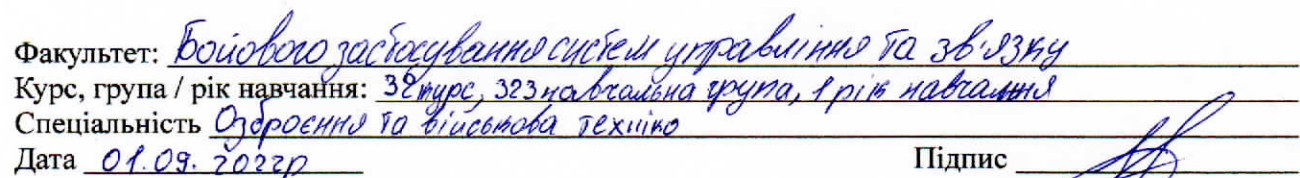 Факультет: Бойового застосування систем управління та зв'язку
Курс, група / рік навчання: 32 курс, 323 навчальна група, 1 рік навчання
Спеціальність Озброєння та військова техніка
Дата 01.09.2022р Підпис